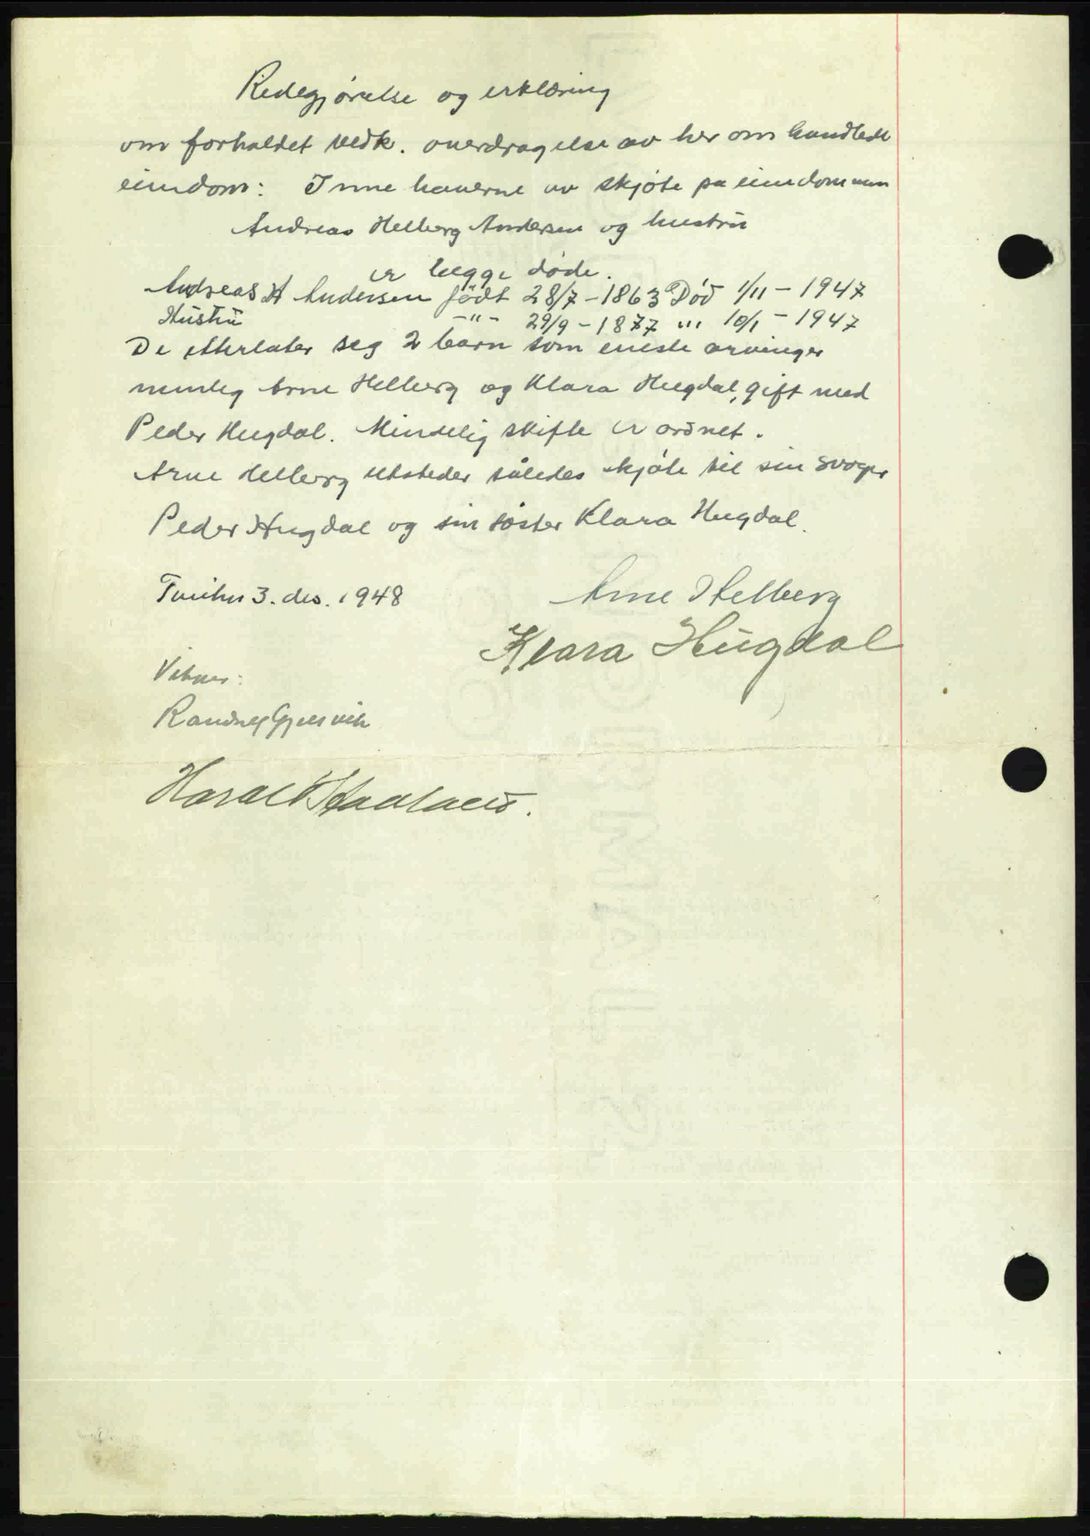 Redegjørelse og erklæring
om forholdet vedk. overdragelse av her om handlede
eiendom: Innehaverne av skjøte på eiendommen
Andreas Helberg Andersen og hustru
er begge døde.
Andreas H Andersen født 28/7 - 1863 Død 1/11 - 1947
Hustru -"- 29/9 - 1877 "' 10/1 - 1947
De etterlater seg 2 barn som eneste arvinger
nemlig Arne Helberg og Klara Hugdal, gift med
Peder Hugdal. Mindelig skifte er ordnet.
Arne Helberg utsteder således skjøte til sin svoger
Peder Hugdal og sin søster Klara Hugdal.
3. des. 1948
Arne Helberg
Klara Hugdal
Vitner:
Randney Gjelsvik
Harald